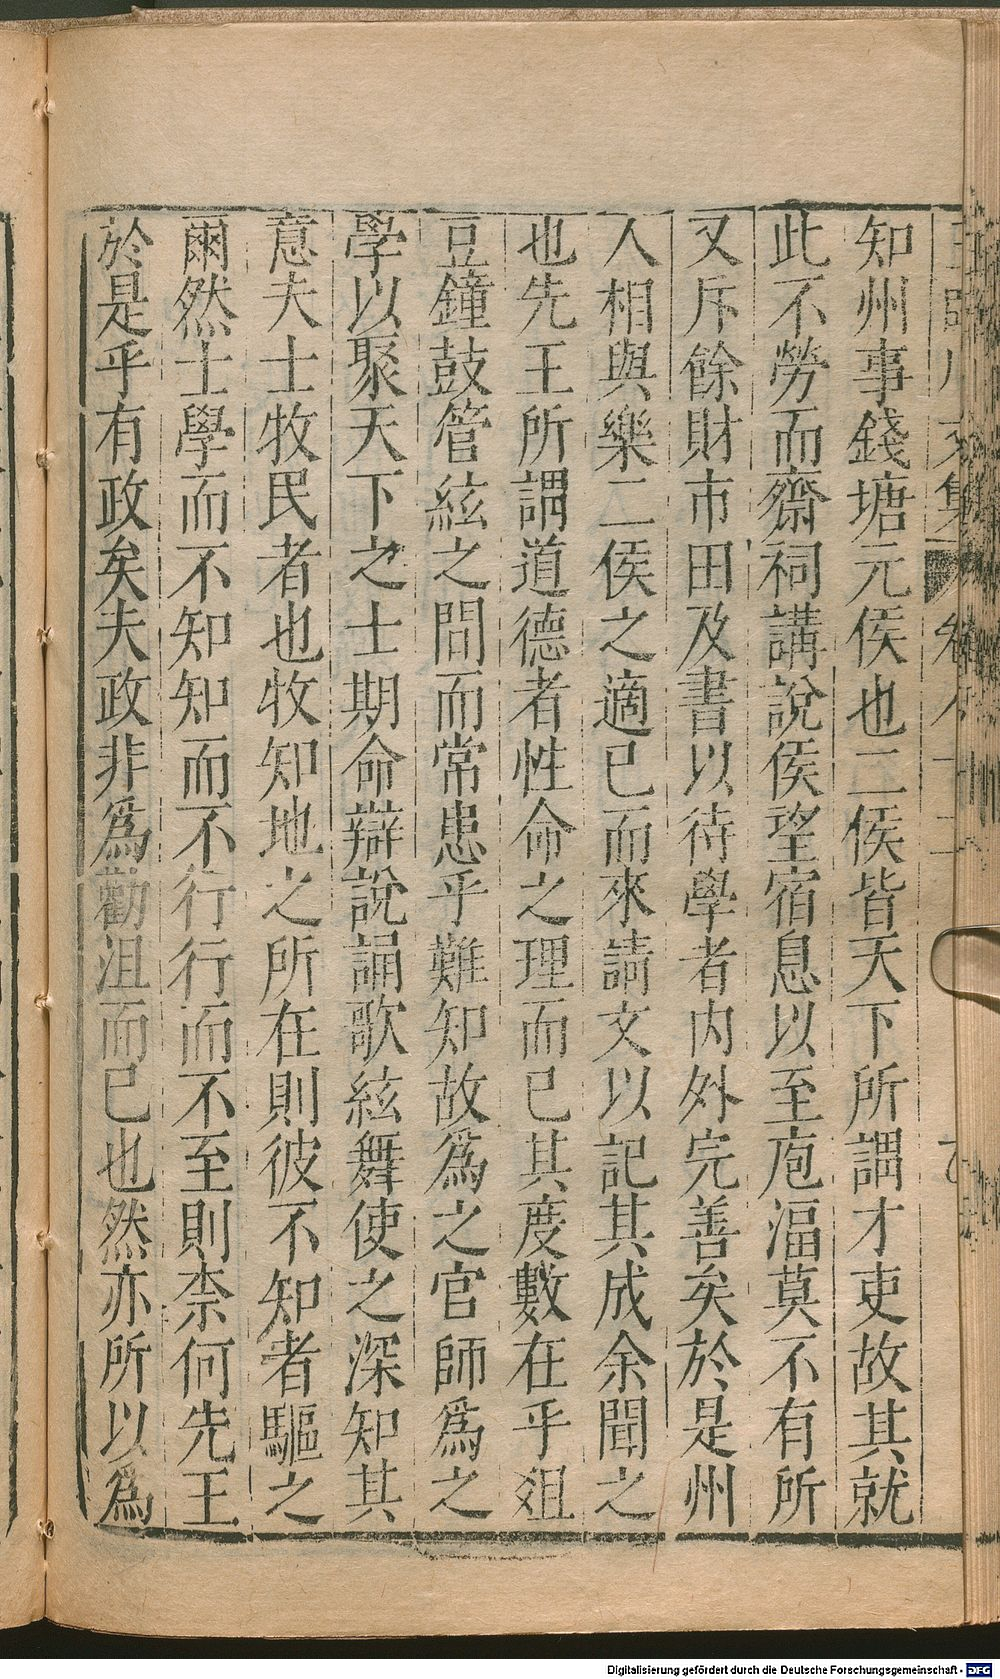 知州事錢塘元侯也二侯皆天下所謂才吏故其就
此不勞而齋祠講說侯望宿息以至庖湢莫不有所
又斥餘財市田及書以待學者内外完善矣於是州
人相與樂二侯之適已而來請文以記其成余聞之
也先王所謂道德者性命之理而已其度數在乎俎
豆鐘鼓管絃之間而常患乎難知故爲之官師爲之
學以聚天下之士期命辯說誦歌絃舞使之深知其
意夫士牧民者也牧知地之所在則彼不知者驅之
爾然士學而不知知而不行行而不至則柰何先王
於是乎有政矣夫政非爲勸沮而已也然亦所以爲
Digitalisierung gefördert durch die Deutsche Forschungsgemeinschaft - DFG